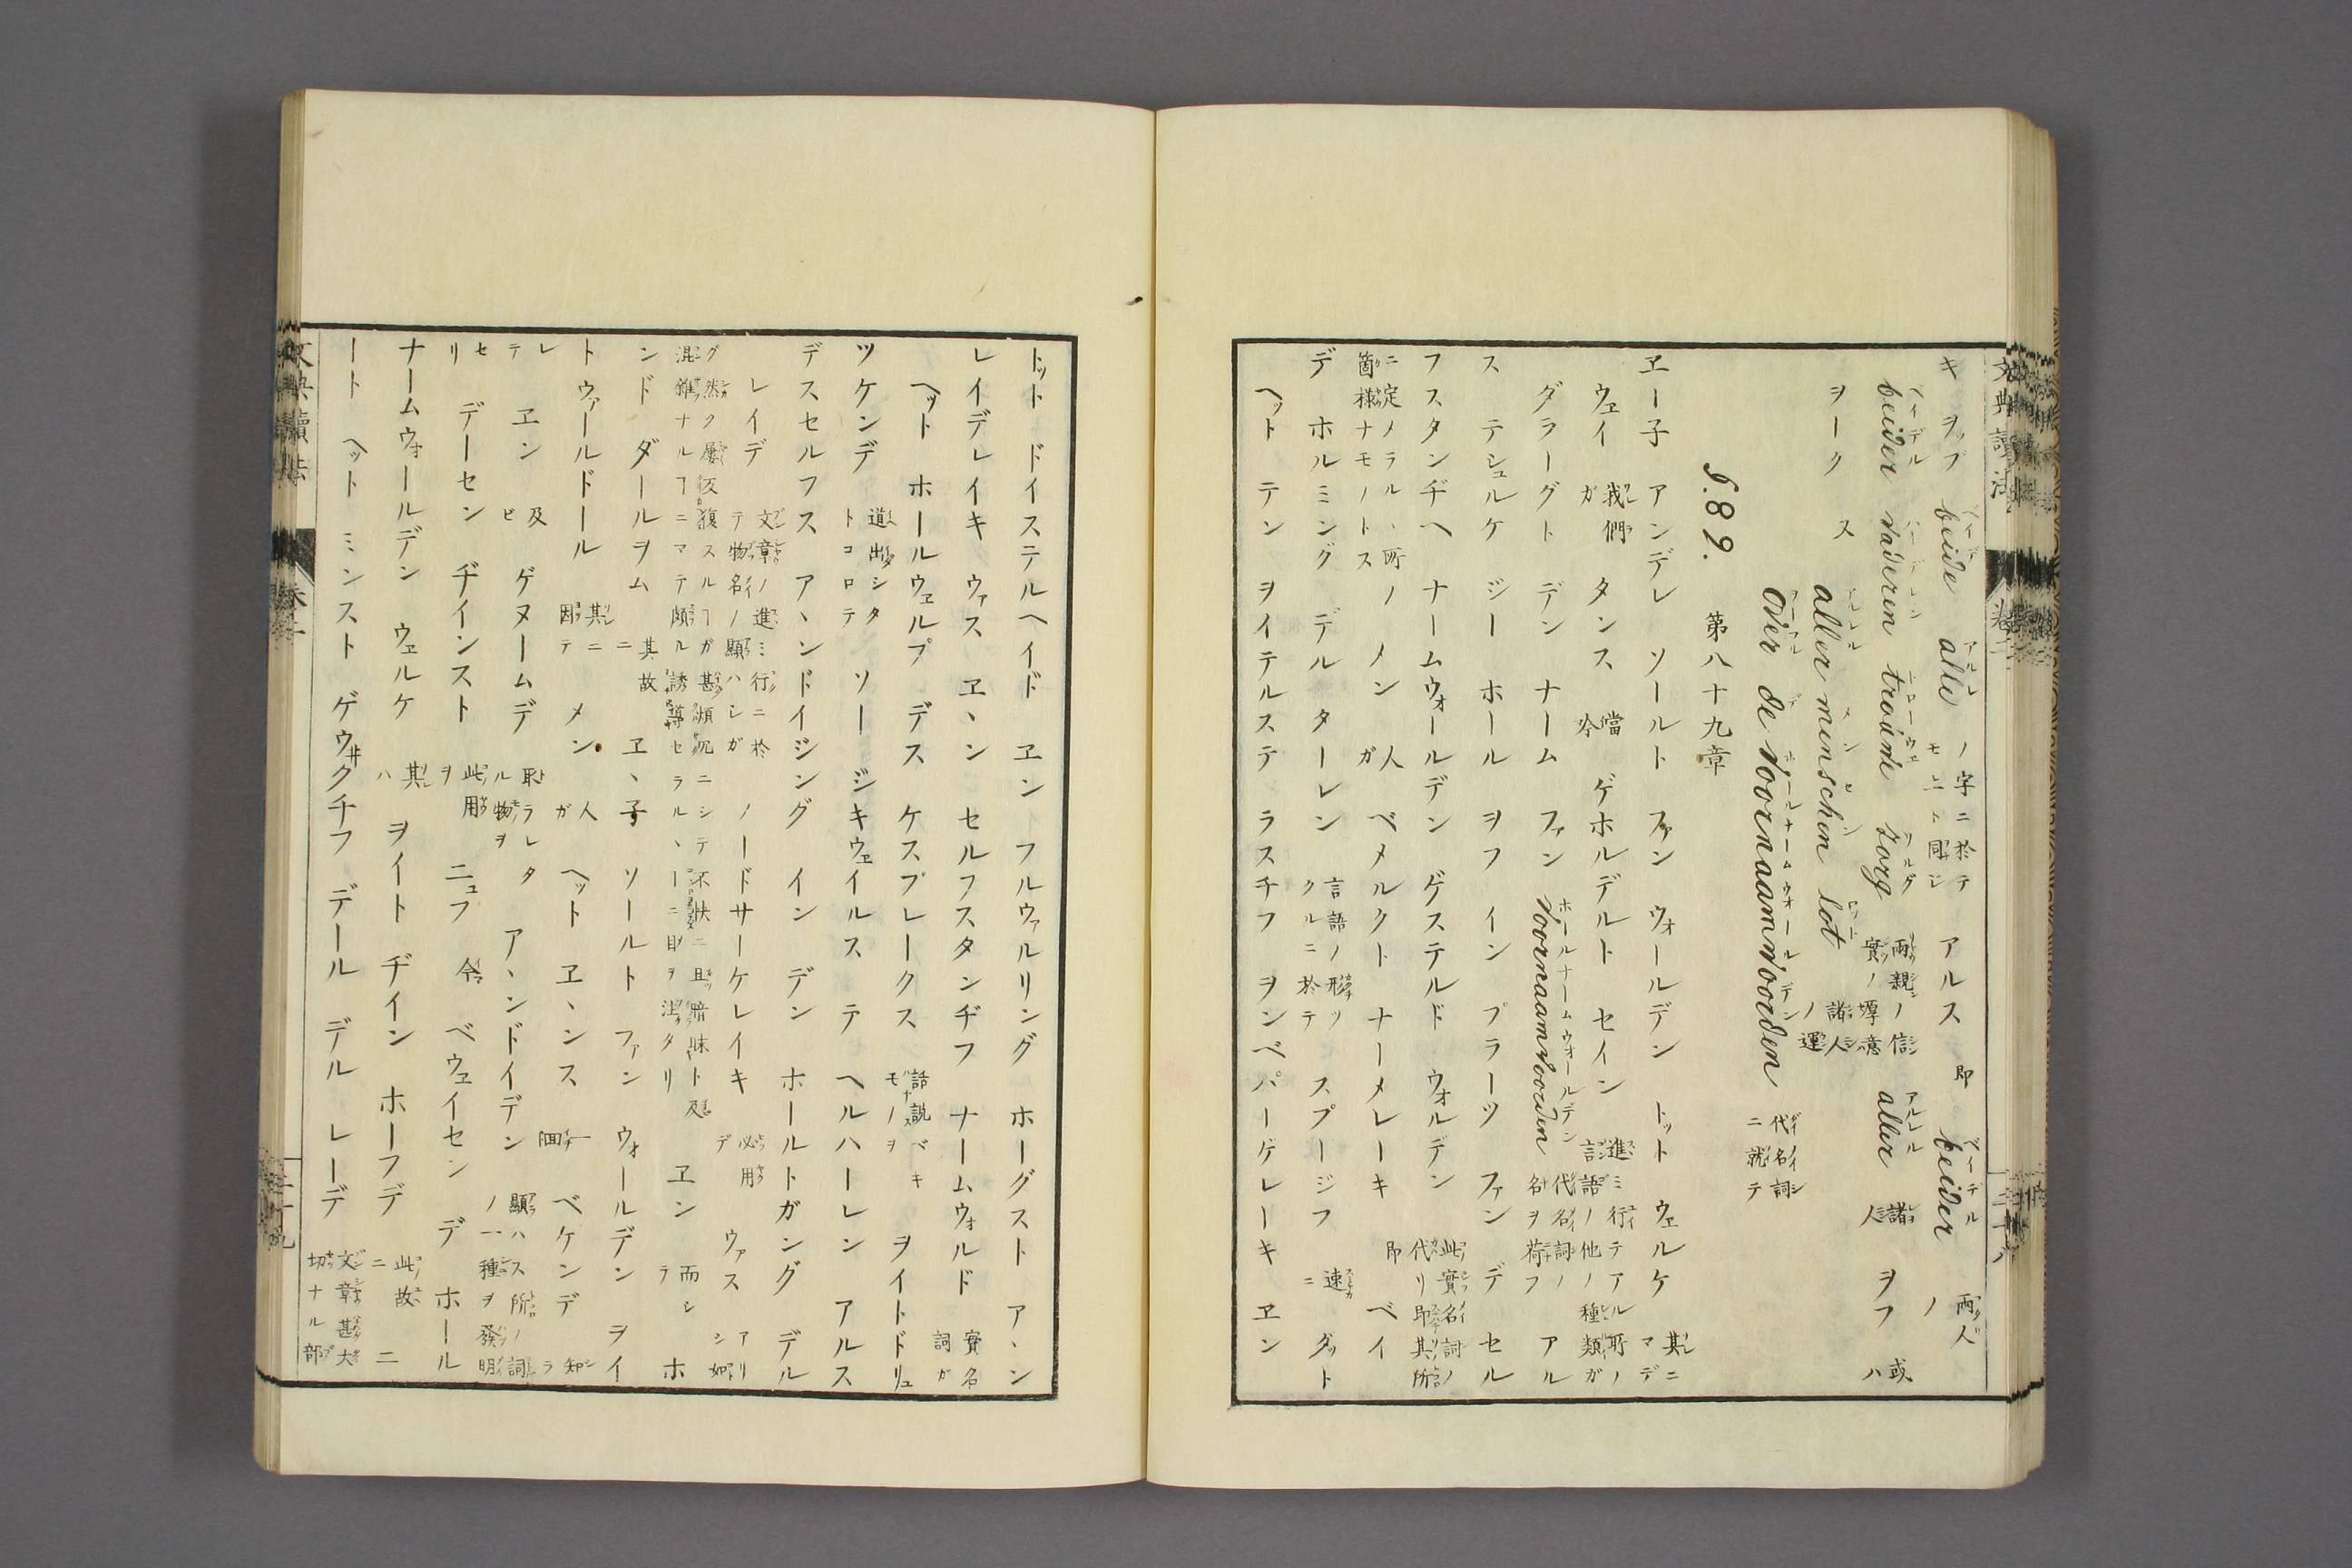 キ ヲップ beide alle ノ字ニ於テモ亦ト同シ アルス 即 beider 兩人ノ
beider vaderen trouwe zorg 兩親ノ信實ノ aller 諸人 ヲフ 或ハ
ヲーク ス aller menschen lot 諸人ノ運
over de voornaamwoorden 代名詞ニ就テ
§.89. 第八十九章
ヱー子 アンデレ ソールト ファン ウォールデン トット ウェルケ 其レマデニ
ウェイ 我們ガ タンス 當今 ゲホルデルト セイン 進ミ行テアル所ノ言語ノ他ノ種類ガ
ダラーグト デン ナーム ファン voornaamwoorden 代名詞ノ名ヲ荷フ アル
ス テシュルケ ジー ホール ヲフ イン プラーツ ファン デ セル
フスタンヂヘ ナームウォールデン ゲステルド ウォルデン 此實名詞ノ代リ即其所
ニ定ノラル、所ノ箇樣ナモノトス メン 人ガ ベメルクト ナーメレーキ 即 ベイ
デ ホルミング デル ターレン 言語ノ形ツクルニ於テ スプージフ 速ニ ダット
ヘット テン ヲイテルステ ラスチフ ヲンベパーゲレーキ ヱン
トット ドイステルヘイド ヱン フルウァルリング ホーグスト アヽン
レイデレイキ ウァス ヱヽン セルフスタンヂフ ナームウォルド 實名詞ガ
ヘット ホールウェルプ デス ケスプレークス 話説スベキモノヲ ヲイトドリュ
ツケンデ 道出シタトコロテ ソー ジキウェイルス テ ヘルハーレン アルス
デスセルフス アヽンドイジング イン デン ホールトガング デル
レイデ 文章ノ進ミ行ニ於テ物名ノ顯ハシガ ノードサーケレイキ 必用デ ウァス アリシ如
グ 然ク屢反復スルヿガ甚煩冗ニシテ不快ニ且暗昧ト及混雜ナルヿニマテ頗ル誘導セラルヽーニ目ヲ注タリ ヱン 而シテ ホ
ンド ダールヲム 其故ニ ヱヽ子 ソールト ファン ウォールデン ヲイ
トウァールドール 其レニ因テ メン 人ガ ヘット ヱヽンス 一回 ベケンデ 知ラ
レテ ヱン 及ビ ゲヌームデ 取ラレタル物ヲ アヽンドイデン 顯ハス所ノ詞ノ一種ヲ發明
セリ デーセン ヂインスト 此用ヲ ニュフ 今 ベウェイセン デ ホール
ナームウォールデン ウェルケ 其ハ ヲイト ヂイン ホーフデ 此故ニ ニ
ート ヘット ミンスト ゲウ井クチフ デール デル レーデ 文章甚大切ナル部